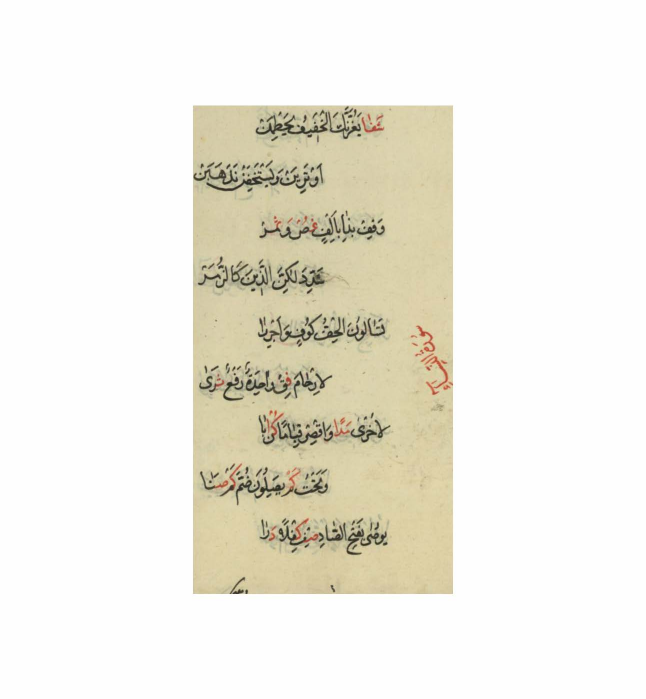 شفا يَغُرَّنكَ الخَفيفُ يَحْطِمَنْ
اَوْ نُرِيَنْ وَيَسْتَخِفَّنْ نَذْهَبَنْ
وَقِفْ بِذَا بِاَلِفٍ غُصْ وَثمرْ
شَدِّدَ لكِنَّ الَّذينَ كَالزُّمَرْ
سورة النساء
تَسَالونَ الخِفُّ كُوفٍ وَاجْرِرا
لارحامَ فِقْ واحِدَةٌ رَفْعٌ ثرى
لاُخْرَى مَدًا وَاقْصِرْ قِيَامًا كُنْ ابا
وَتَحْتُ كَمْ يصلونَ ضُمَّ كَمْ صبا
يوصى بفَتْحِ الصَّادِ صِفْ كِفْلاً درا